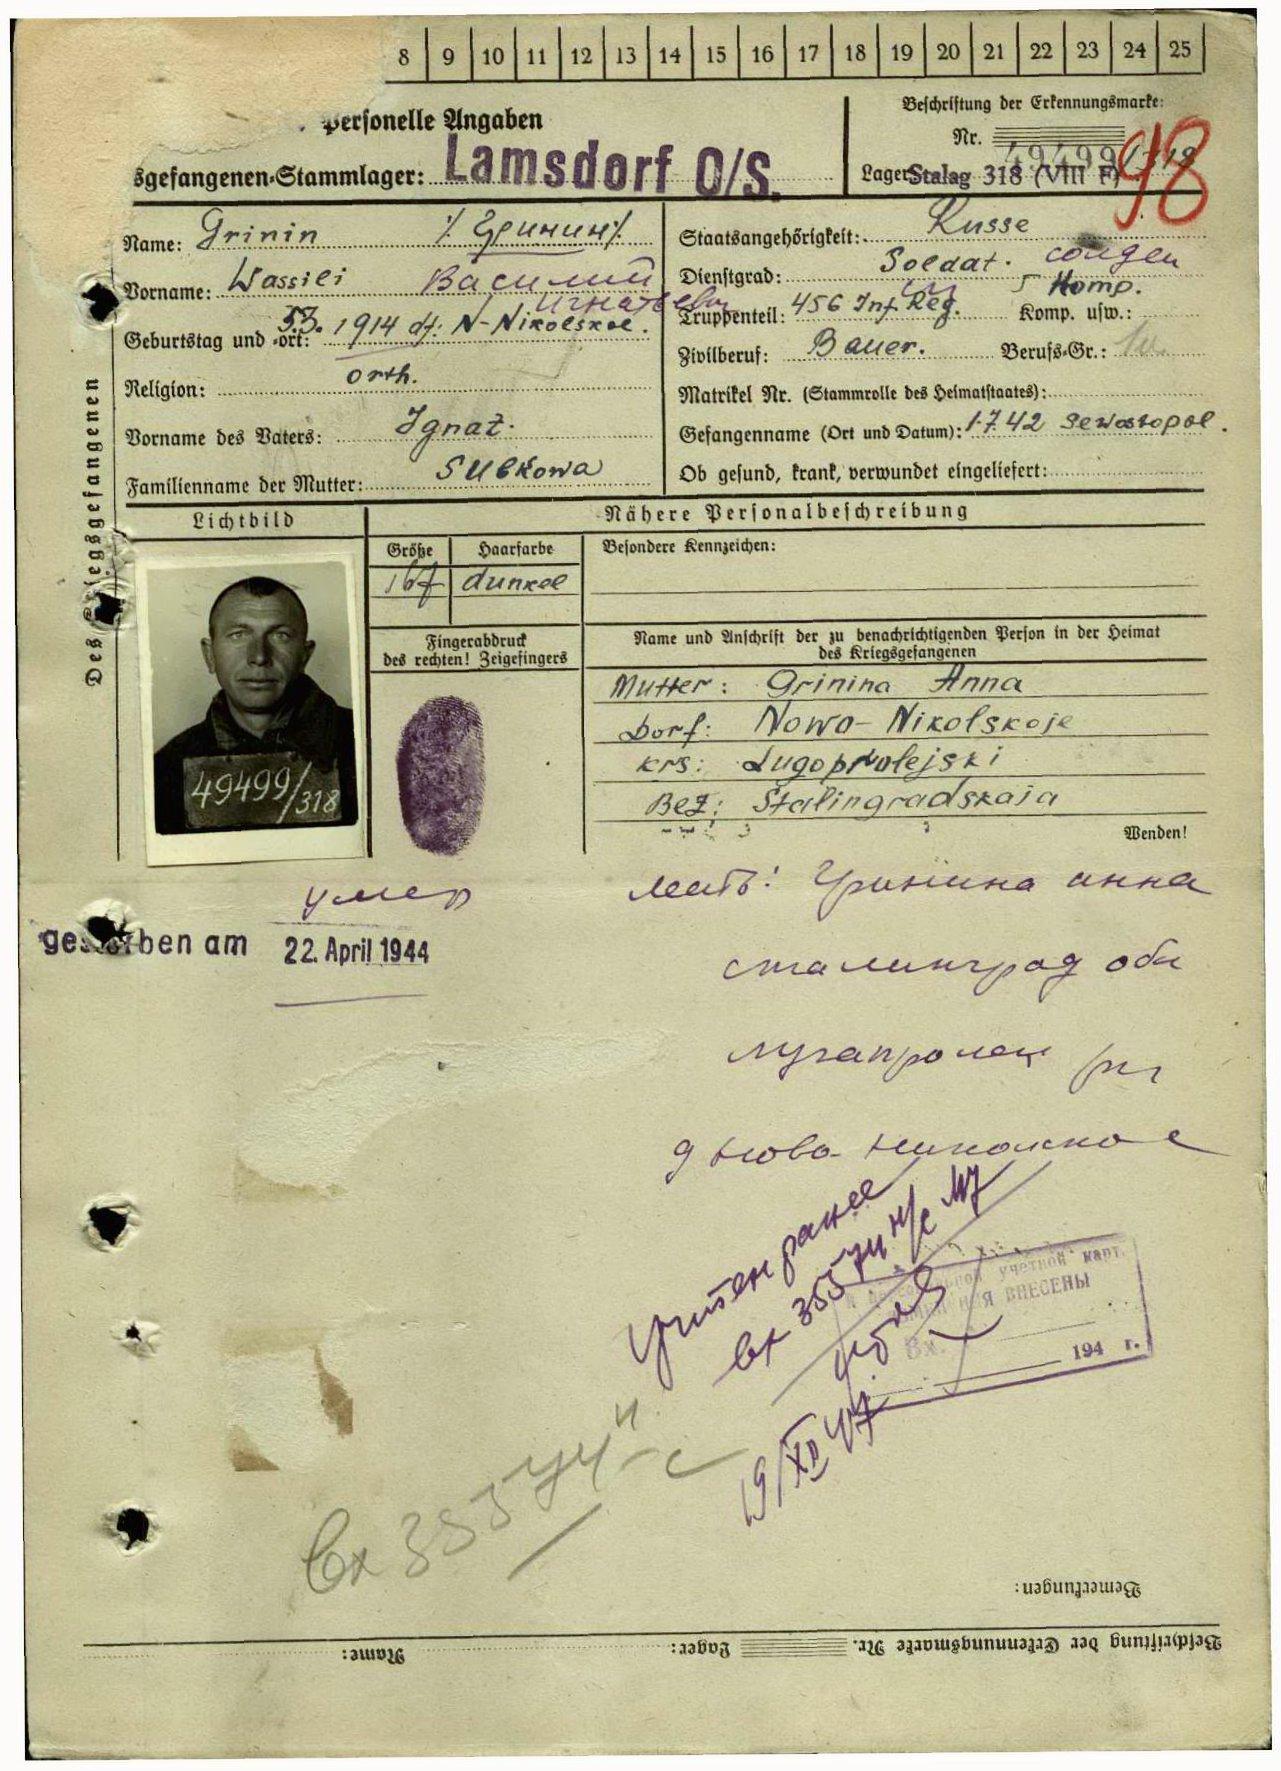 8 9 10 11 12 13 14 15 16 17 18 19 20 21 22 23 24 25
Personelle Angaben
sgefangenen-Stammlager: Lamsdorf O/S.
Beschriftung der Erkennungsmarke:
Nr. 49499
Lager: Stalag 318 (VIII F)
98
Name: Grinin /Гринин/
Vorname: Wassili Василий
Игнатьевич
Geburtstag und -ort: 5.3. 1914 df: N-Nikolskoe.
Religion: orth.
Vorname des Vaters: Ignat.
Familienname der Mutter: Subkowa
Staatsangehörigkeit: Russe
Dienstgrad: Soldat. солдат
Truppenteil: 456 Inf Reg. Komp. usw.: 5 Komp.
Zivilberuf: Bauer. Berufs-Gr.:
Matrikel Nr. (Stammrolle des Heimatstaates):
Gefangenname (Ort und Datum): 1.7.42 Sewastopol.
Ob gesund, krank, verwundet eingeliefert:
Des Kriegsgefangenen
Lichtbild
Nähere Personalbeschreibung
Größe Haarfarbe
167 dunkel
Besondere Kennzeichen:
Fingerabdruck
des rechten! Zeigefingers
49499/318
Name und Anschrift der zu benachrichtigenden Person in der Heimat
des Kriegsgefangenen
Mutter: Grinina Anna
Dorf: Nowo-Nikolskoje
krs: Lugoprolejski
Bez: Stalingradskaja
Wenden!
умер
gestorben am 22. April 1944
мать: Гринина анна
сталинград обл
лугапролец
д Ново-николское
Учтен ранее
вх 355
19/XII 47
учетной карт.
ВНЕСЕНЫ
Вх.
194 г.
вх 355
Bemerkungen:
Beschriftung der Erkennungsmarke Nr. Lager: Name: